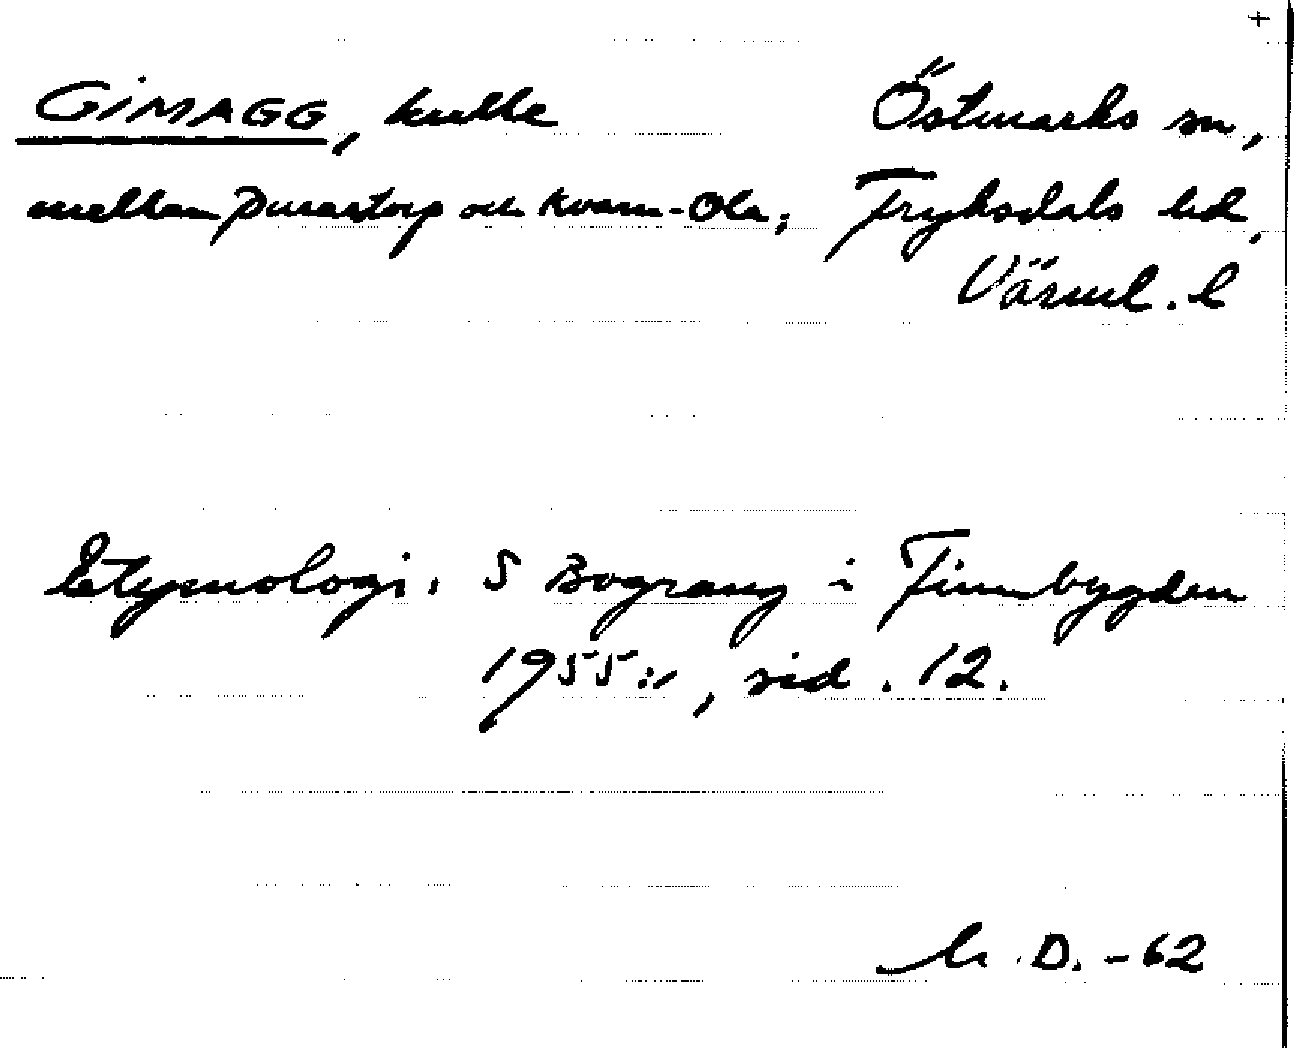 +
GIMAGG, kulle Östmarks sn,
mellan Purastorp och Kvarn-Ola; Fryksdals hd,
Värml. l
Etymologi. S Bograng i Finnbygden
1955:1, sid. 12.
D. -62